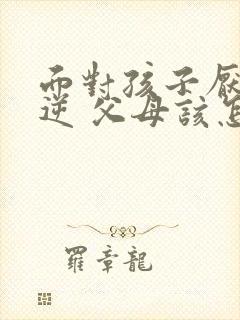 面對孩子厭
逆 父母該怎
羅章龍